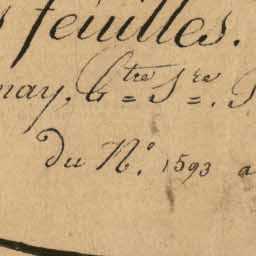 feuilles.
may, 6^tre S^re.
du N.° 1593 a